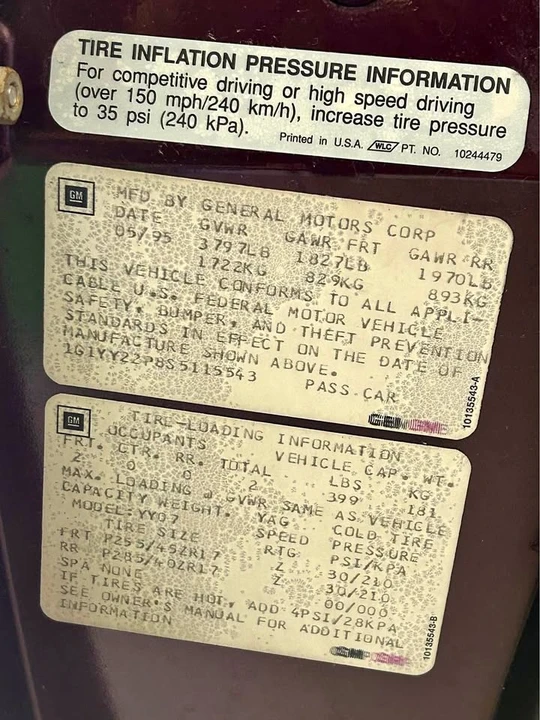 TIRE INFLATION PRESSURE INFORMATION
For competitive driving or high speed driving
(over 150 mph/240 km/h), increase tire pressure
to 35 psi (240 kPa).
Printed in U.S.A. WLC PT. NO. 10244479
GM
MFD BY GENERAL MOTORS CORP
DATE GVWR GAWR FRT GAWR RR
05/95 3797LB 1827LB 1970LB
1722KG 829KG 893KG
THIS VEHICLE CONFORMS TO ALL APPLI-
CABLE U.S. FEDERAL MOTOR VEHICLE
SAFETY, BUMPER, AND THEFT PREVENTION
STANDARDS IN EFFECT ON THE DATE OF
MANUFACTURE SHOWN ABOVE.
1G1YY22P8S5115543 PASS CAR
10135543-A
GM
TIRE-LOADING INFORMATION
OCCUPANTS VEHICLE CAP. WT.
FRT. CTR. RR. TOTAL LBS KG
2 0 0 2 399 181
MAX. LOADING @ GVWR SAME AS VEHICLE
CAPACITY WEIGHT. YAG COLD TIRE
MODEL:YY07 SPEED PRESSURE
TIRE SIZE RTG PSI/KPA
FRT P255/45ZR17 Z 30/210
RR P285/40ZR17 Z 30/210
SPA NONE 00/000
IF TIRES ARE HOT, ADD 4PSI/28KPA
SEE OWNER'S MANUAL FOR ADDITIONAL
INFORMATION
10135543-B